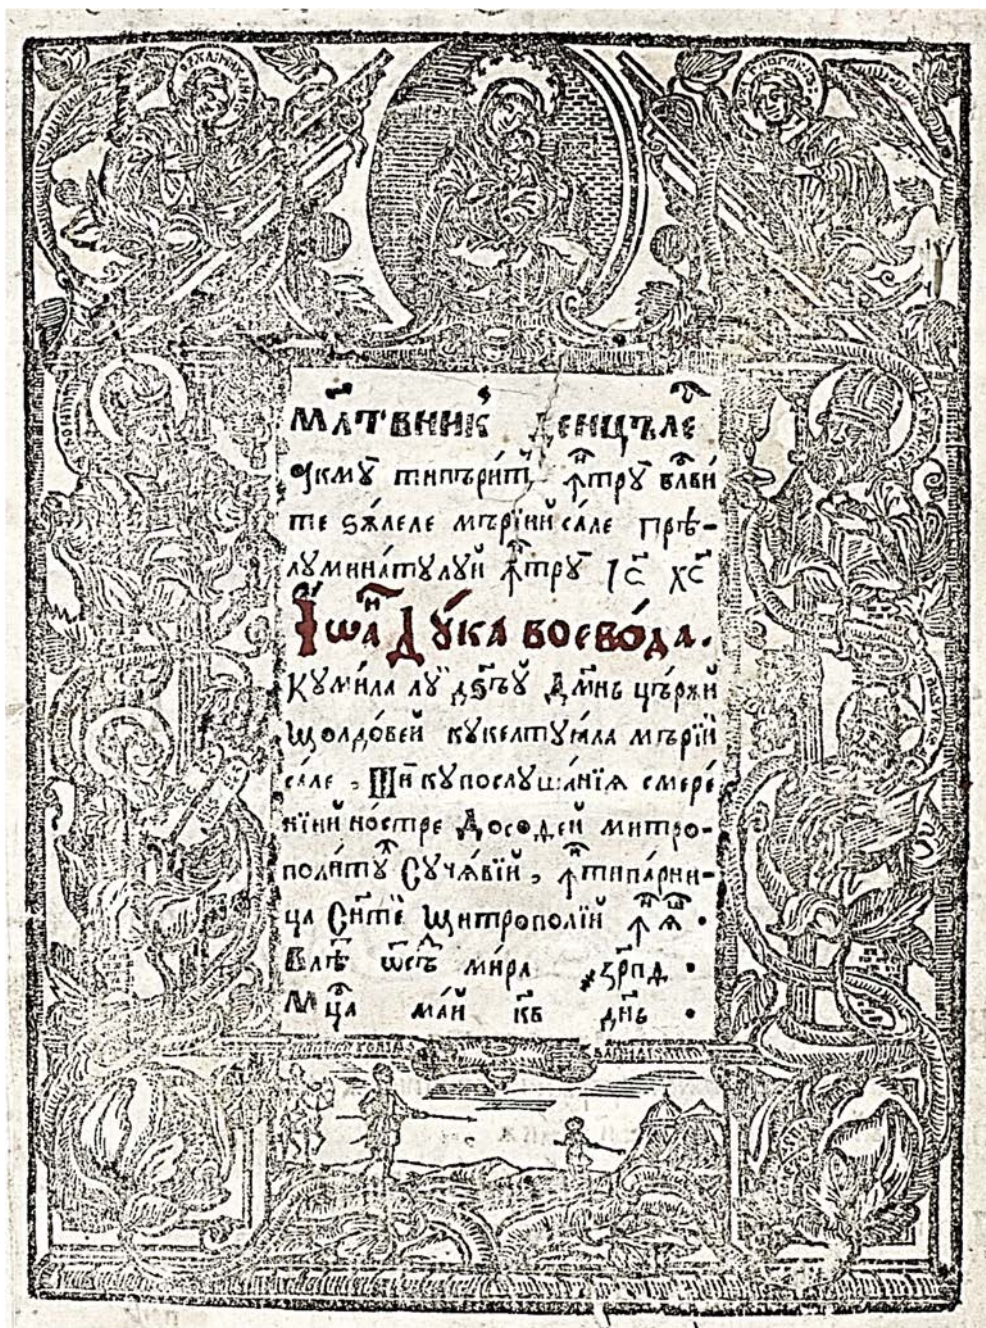 Мл҃твник де нцъле
ꙗкмꙋ типъри́т ꙟтрꙋ бл҃ви́
те ѕи́леле мъри́й са́ле прѣ-
лꙋмина́тꙋлꙋй ꙟтрꙋ І҃с Х҃с
Іѡа҃н Дꙋ́ка воево́да.
Кꙋ ми́ла лꙋй д҃ѕъꙋ д҃мнь цържй
Молдо́вей кꙋ келтꙋꙗла мърі́й
са́ле , Ши кꙋ послꙋша́нїѧ смере́
нїй но́стре Досоѳей митро-
поли́тꙋл Сꙋчѧ́вїй , ꙟ типа́рни-
ца С҃нтей Митрополїй ꙟ Ꙗш •
Влѣт ѿ създ ми́ра ҂зрпд •
М҃ца ма́й к҃в д҃нь •